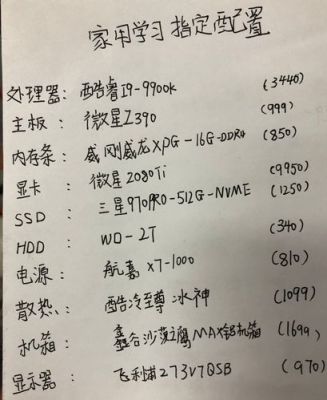 家用学习指定配置
处理器: 酷睿I9-9900k (3440)
主板: 微星Z390 (999)
内存条: 威刚威龙XPG-16G-DDR4 (850)
显卡: 微星2080Ti (9950)
SSD: 三星970PRO-512G-NVME (1250)
HDD: WD-2T (340)
电源: 航嘉X7-1000 (810)
散热: 酷冷至尊冰神 (1099)
机箱: 鑫谷沙漠之鹰MAX铝机箱 (1699)
显示器: 飞利浦273V7QSB (970)